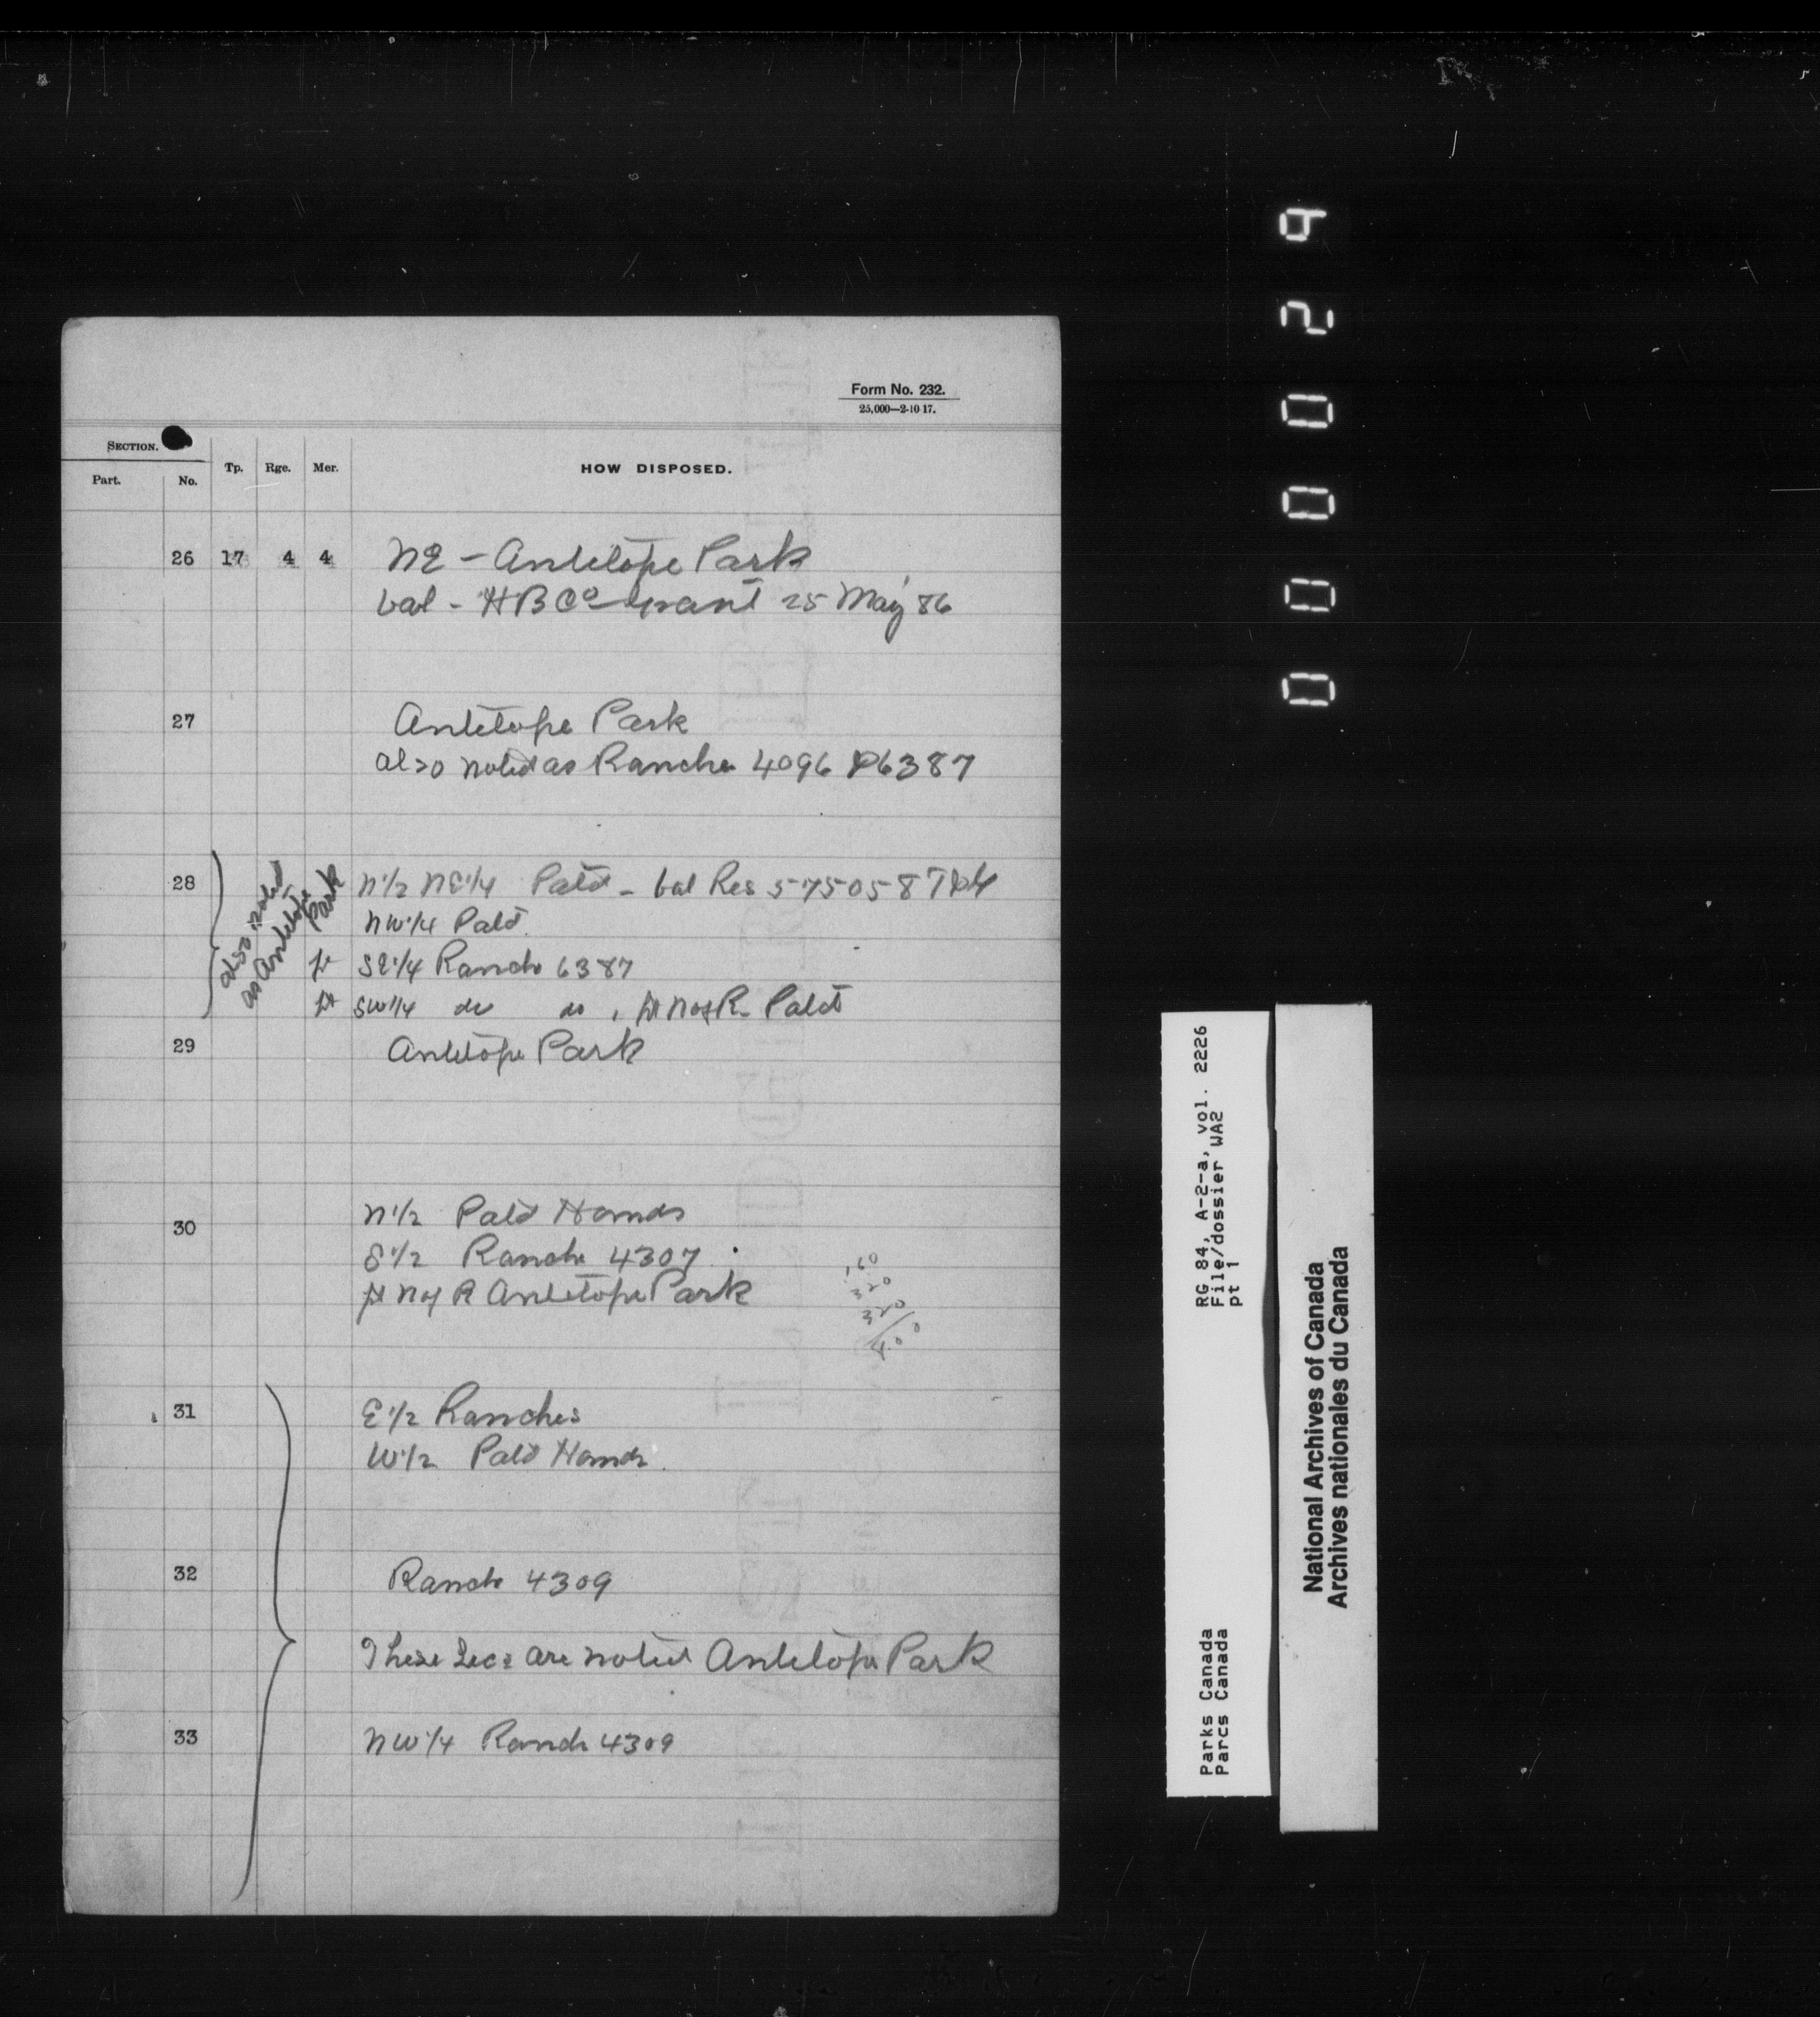 Form No. 232.
25,000—2-10-17.
SECTION.
Part. No. Tp. Rge. Mer. HOW DISPOSED.
26 17 4 4 NE - Antelope Park
bal - HBCo grant 25 May '86
27 Antelope Park
also noted as Ranche 4096 & 6387
also noted
as Antelope
Park
28 N1/2 NE1/4 Patd - bal Res 575058
NW1/4 Patd.
pt SE1/4 Ranche 6387
pt SW1/4 do do, pt N of R. Patd
29 Antelope Park
30 N1/2 Patd Homds
S1/2 Ranche 4307
pt N of R Antelope Park
160
320
320
31 E1/2 Ranches
W1/2 Patd Homds.
32 Ranche 4309
These Secs are noted Antelope Park
33 NW1/4 Ranch 4309
000029
RG 84, A-2-a, vol. 2226
File/dossier WA2
pt 1
Parks Canada
Parcs Canada
National Archives of Canada
Archives nationales du Canada